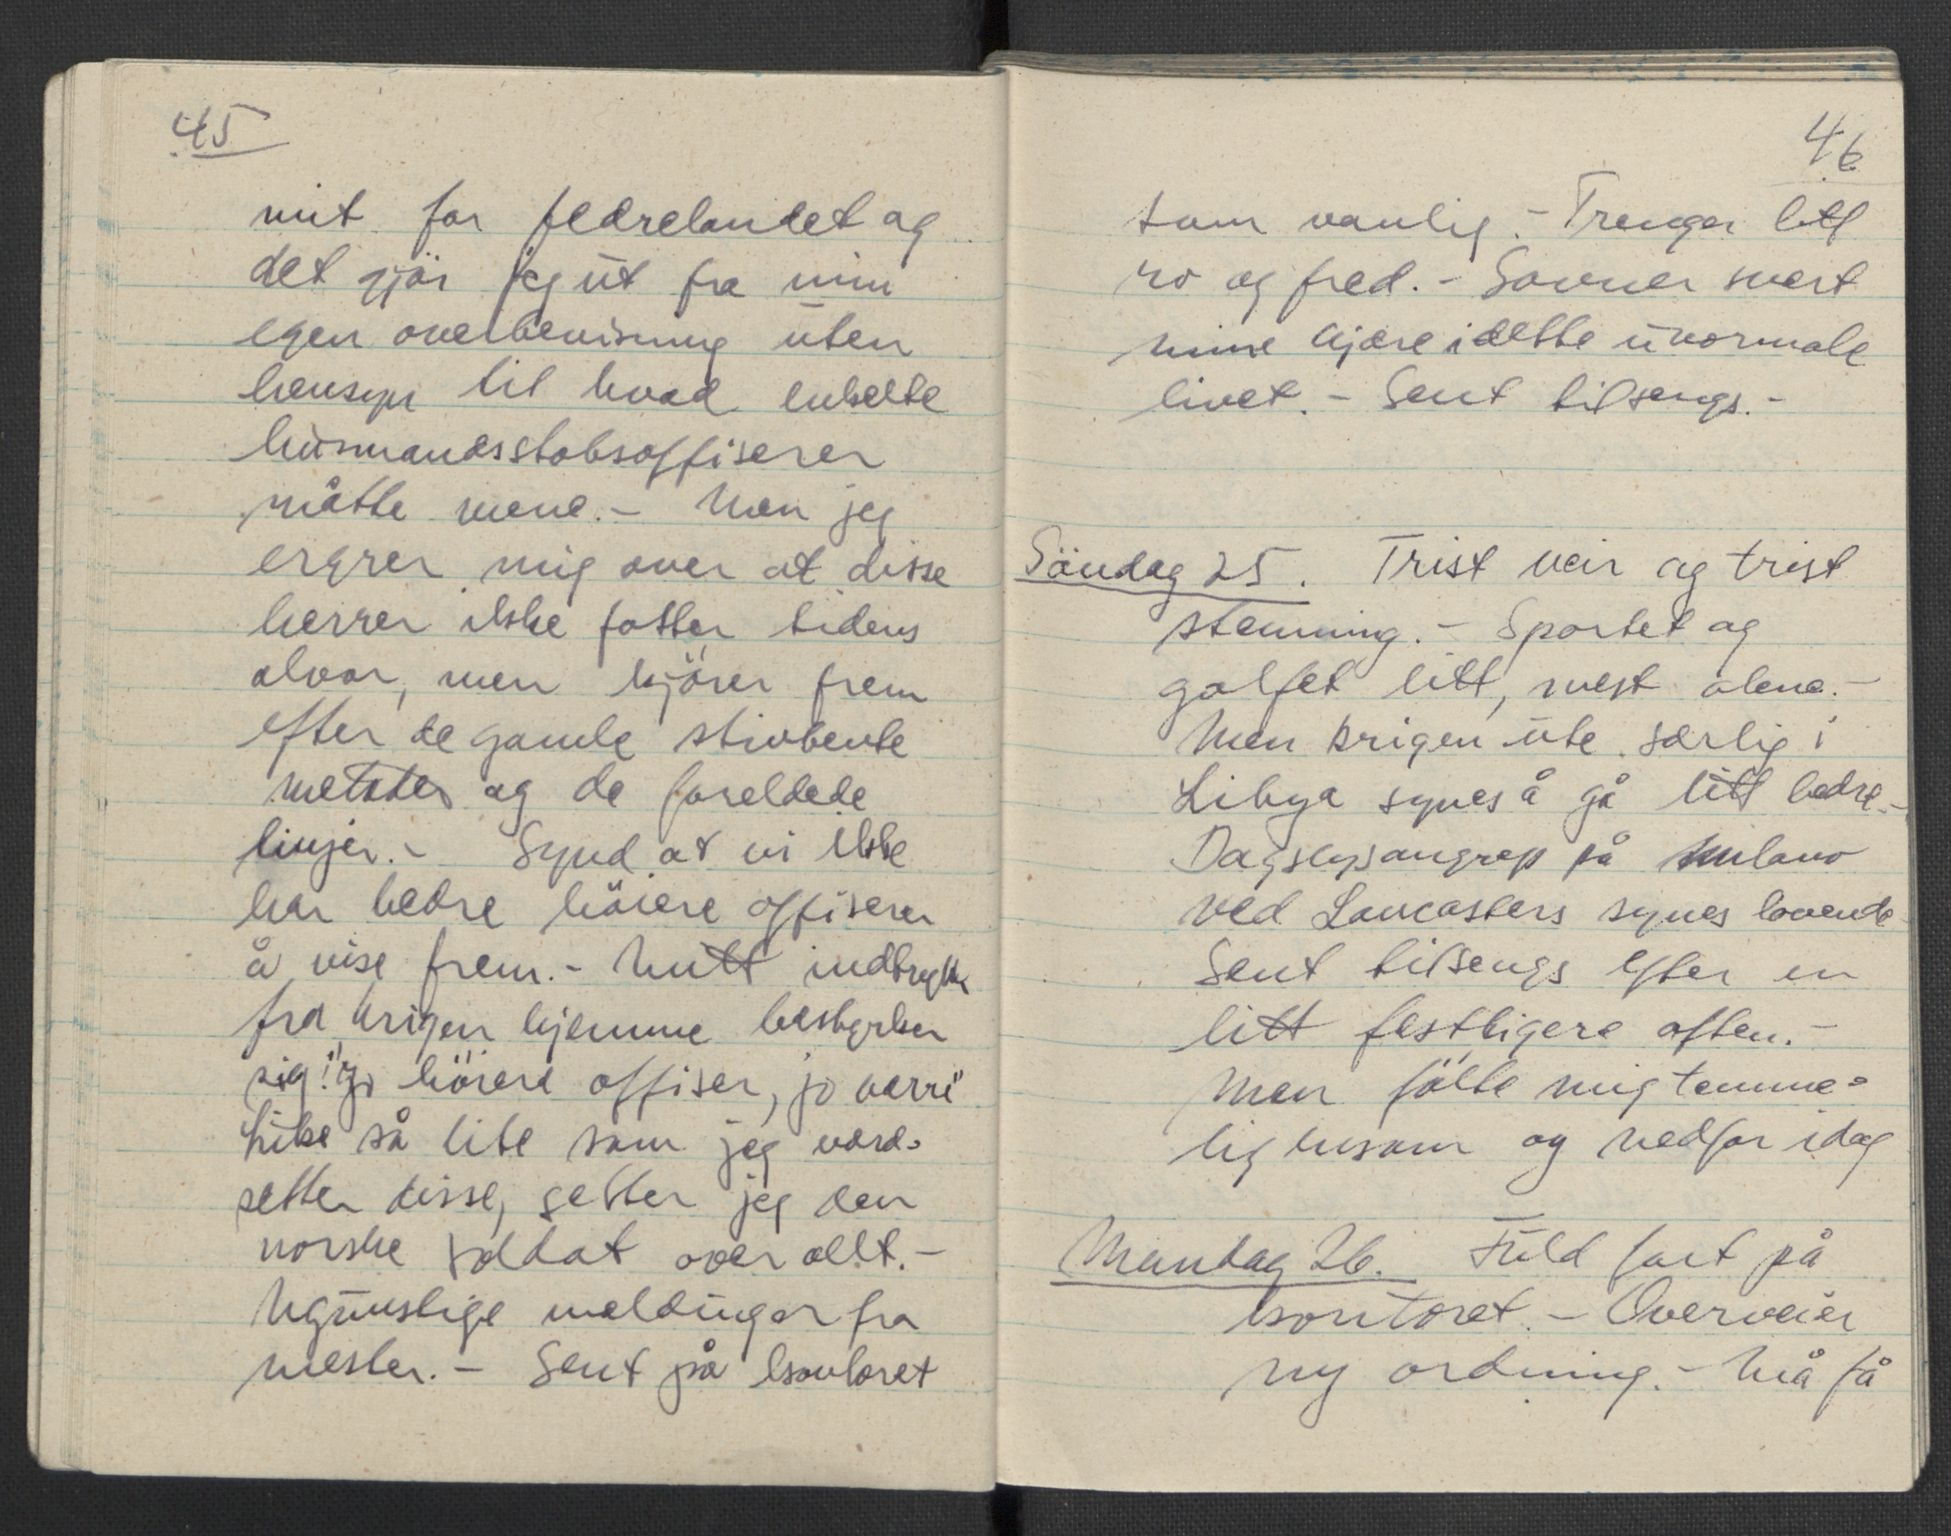 45
mit for fedrelandet og
det gjör jeg ut fra min
egen overbevisning uten
hensyn til hvad enkelte
husmandsstabsoffiserer
måtte mene. – Men jeg
ergrer mig over at disse
herrer ikke fatter tidens
alvor, men kjörer frem
efter de gamle stivbente
metoder og de foreldede
linjer. – Synd at vi ikke
har bedre höiere offiserer
å vise frem. – Mitt indtrykk
fra krigen hjemme bestyrker
sig: "Jo höiere offiser, jo værre"
Like så lite som jeg værd=
setter disse, setter jeg den
norske soldat over allt. –
Ugunstige meldinger fra
vesten. – Sent på kontoret
46
som vanlig. – Trenger litt
ro og fred. – Savner svert
mine kjære i dette unormale
livet. – Sent tilsengs. –
Söndag 25. Trist veir og trist
stemning. – Sportet og
golfet litt, mest alene. –
Men krigen ute særlig i
Libya synes å gå litt bedre. –
Dagslysangrep på Milano
ved Lancasters synes lovende
Sent tilsengs efter en
litt festligere aften. –
Men fölte mig temme=
lig ensom og nedfor idag
Mandag 26. Fuld fart på
kontoret. – Overveier
ny ordning. – Må få